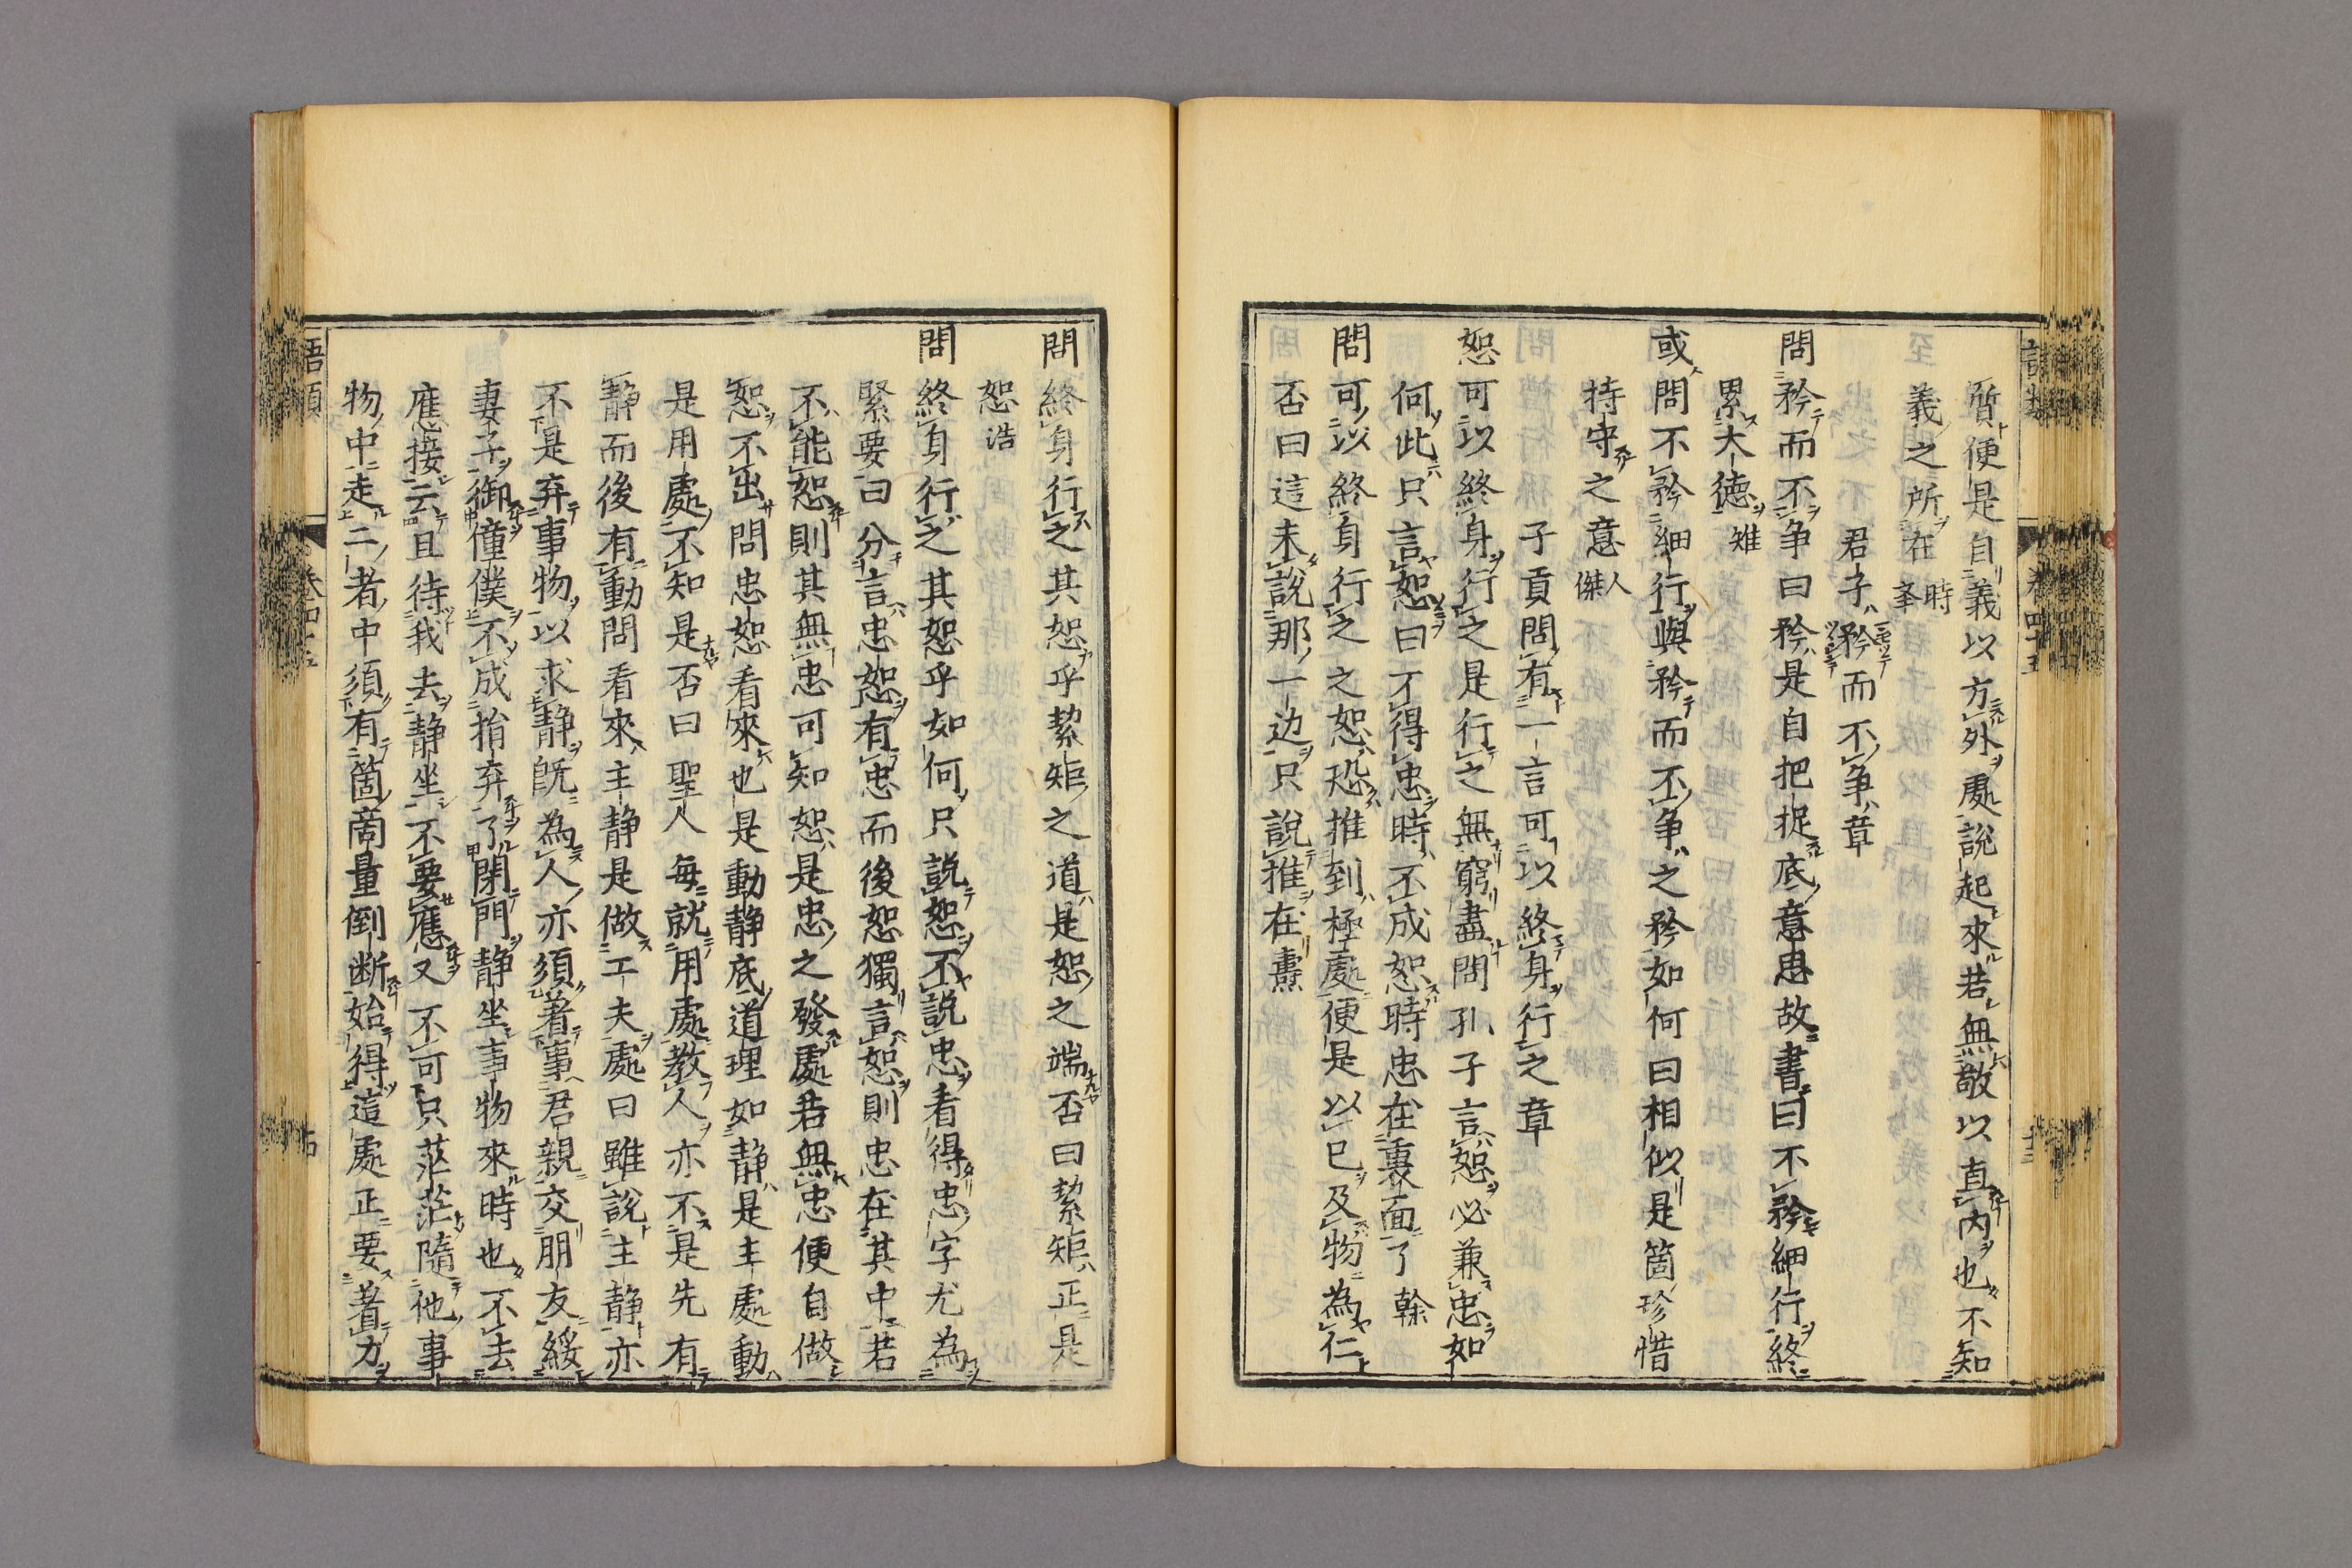 質便是自義以方外處說起來若無敬以直內也不知
義之所在 時峯
君子矜而不爭章
問矜而不爭曰矜是自把捉底意思故書曰不矜細行終
累大德 雉
或問不矜細行與矜而不爭之矜如何曰相似是箇珍惜
持守之意 人傑
子貢問有一言可以終身行之章
恕可以終身行之是行之無窮盡問孔子言恕必兼忠如
何此只言恕曰不得忠時不成恕時忠在裏面了 榦
問可以終身行之之恕恐推到極處便是以己及物為仁
否曰這未說那一边只說推在 燾
問終身行之其恕乎絜矩之道是恕之端否曰絜矩正是
恕 浩
問終身行之其恕乎如何只說恕不說忠看得忠字尤為
緊要曰分言忠恕有忠而後恕獨言恕則忠在其中若
不能恕則其無忠可知恕是忠之發處若無忠便自做
恕不出問忠恕看來也是動静底道理如静是主處動
是用處不知是否曰聖人每就用處教人亦不是先有
静而後有動問看來主静是做工夫處曰雖說主静亦
不是弃事物以求静既為人亦須着事君親交朋友綏
妻子御僮僕不成捐弃了閉門静坐事物來時也不去
應接云且待我去静坐不要應又不可只茫茫隨他事
物中走二者中須有箇商量倒断始得這處正要着力
語類
卷四十五